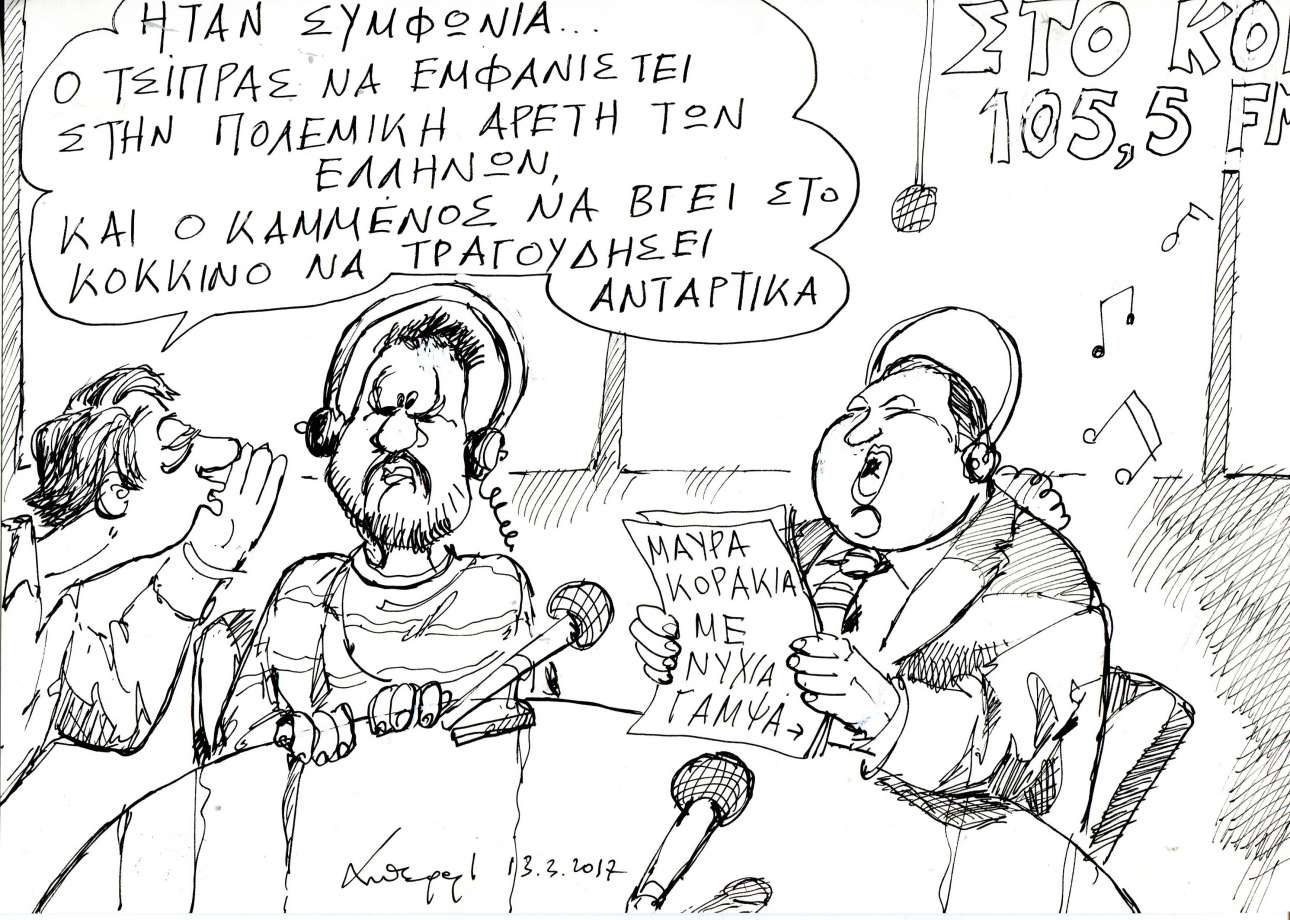 ΗΤΑΝ ΣΥΜΦΩΝΙΑ...
Ο ΤΣΙΠΡΑΣ ΝΑ ΕΜΦΑΝΙΣΤΕΙ
ΣΤΗΝ ΠΟΛΕΜΙΚΗ ΑΡΕΤΗ ΤΩΝ
ΕΛΛΗΝΩΝ,
ΚΑΙ Ο ΚΑΜΜΕΝΟΣ ΝΑ ΒΓΕΙ ΣΤΟ
ΚΟΚΚΙΝΟ ΝΑ ΤΡΑΓΟΥΔΗΣΕΙ
ΑΝΤΑΡΤΙΚΑ
ΣΤΟ ΚΟ
105,5 FM
ΜΑΥΡΑ
ΚΟΡΑΚΙΑ
ΜΕ
ΝΥΧΙΑ
ΓΑΜΨΑ→
13.3.2017